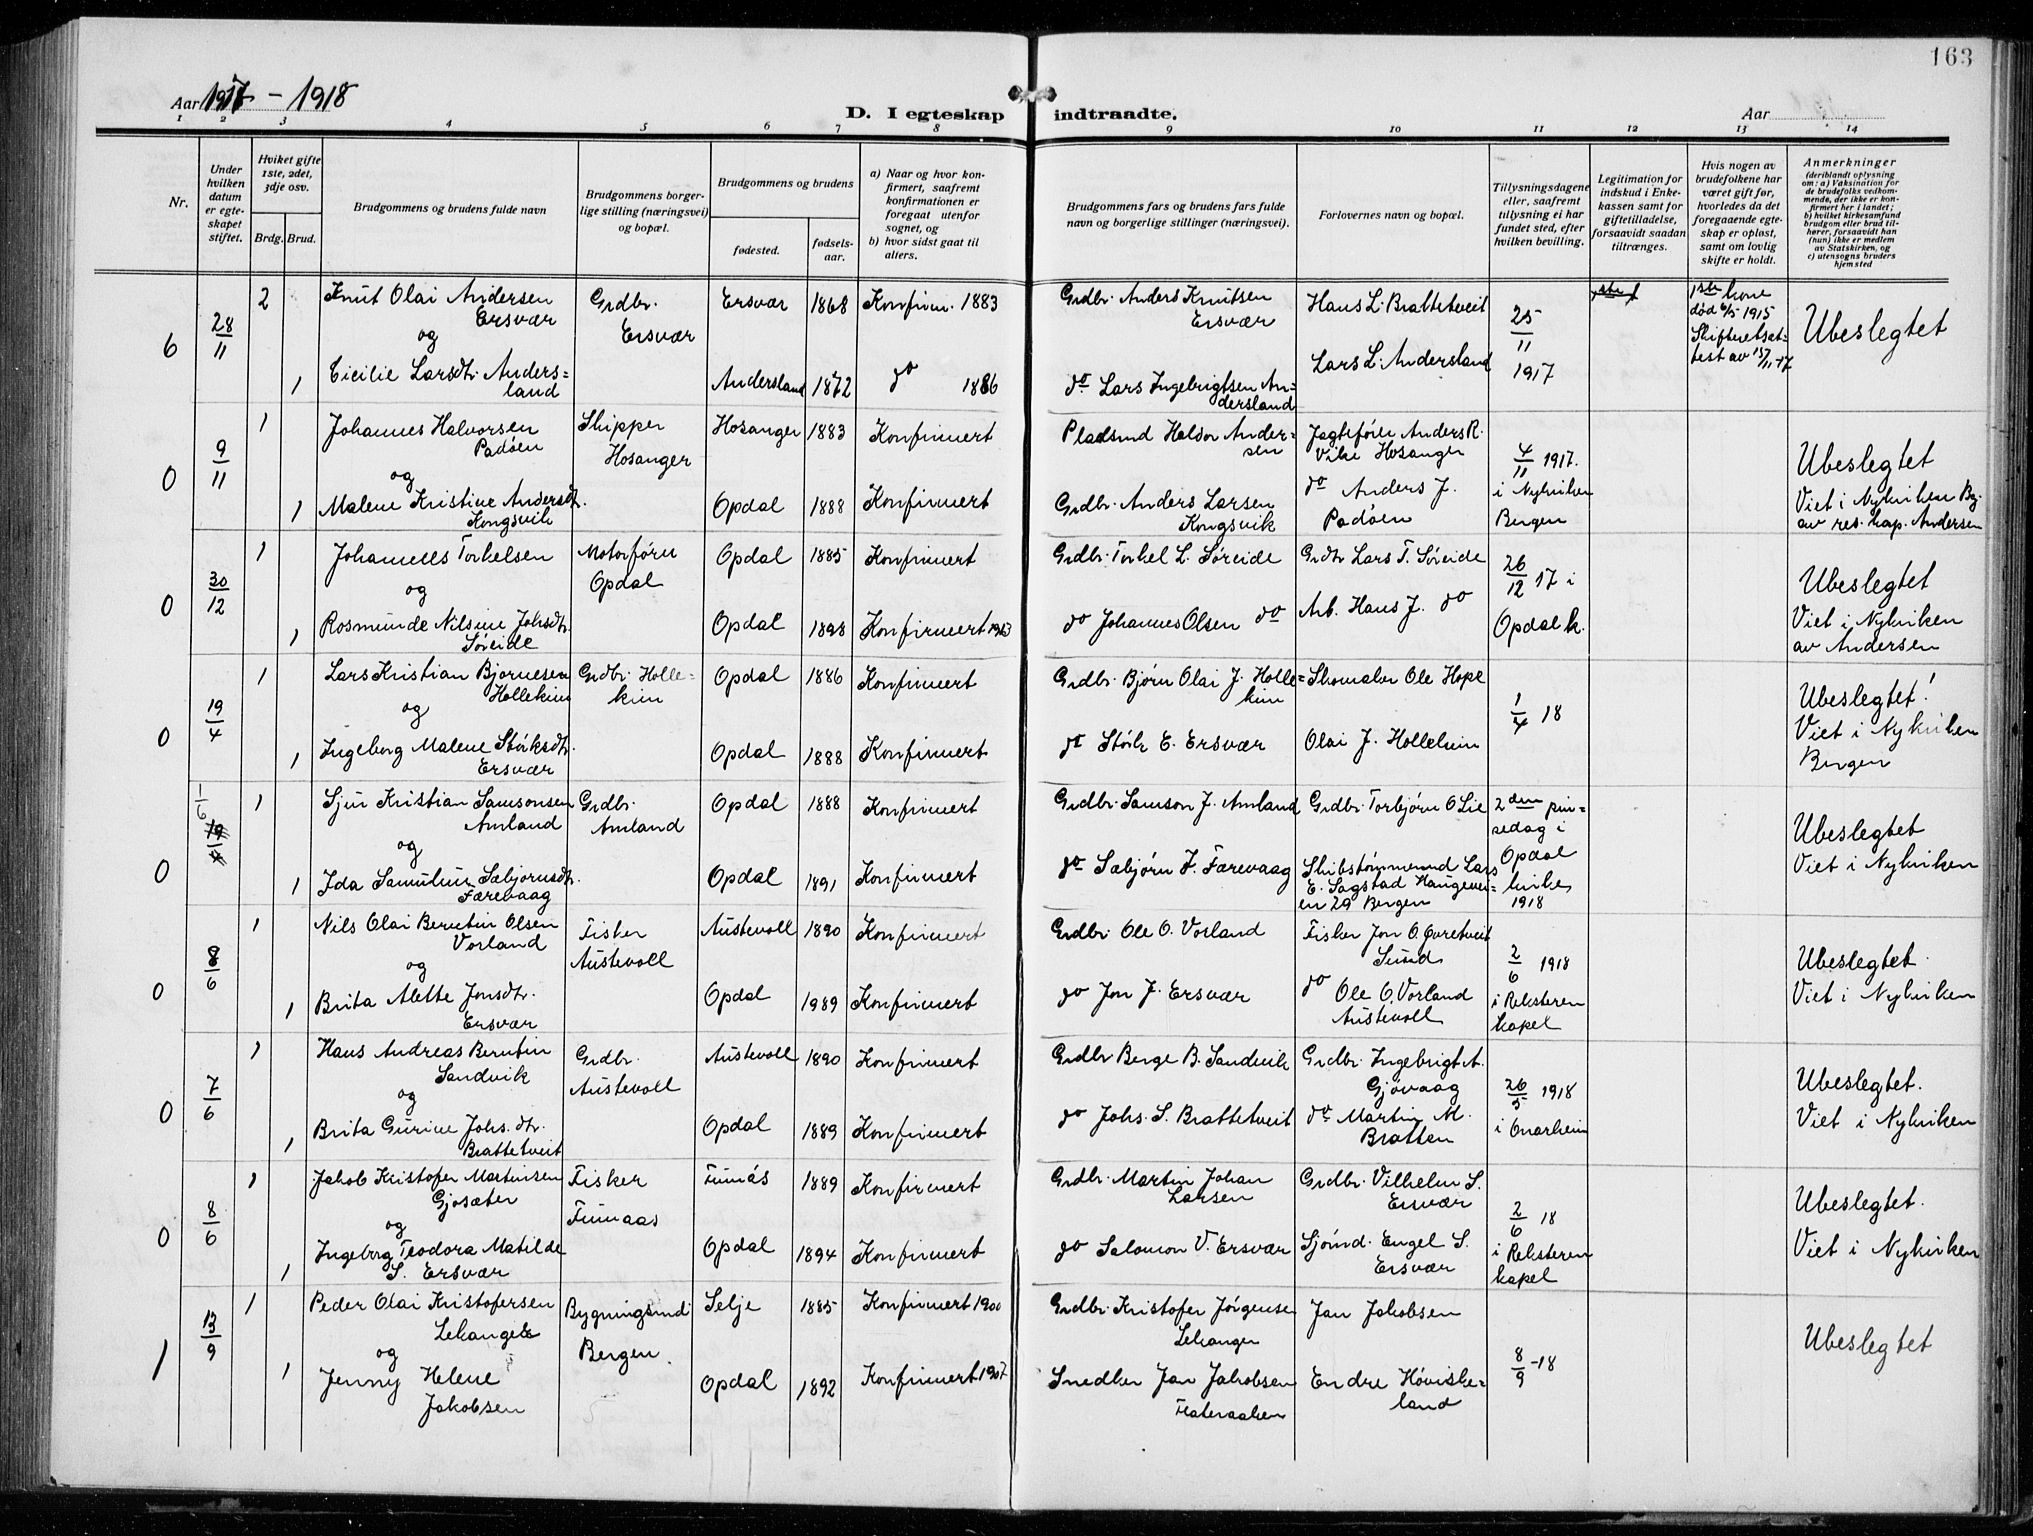 163
Aar 1917 - 1918
D. I egteskap indtraadte.
Aar
1 2 3 4 5 6 7 8 9 10 11 12 13 14
Nr.
Under hvilken datum er egteskapet stiftet.
Hvilket gifte 1ste, 2det, 3dje osv.
Brdg. Brud.
Brudgommens og brudens fulde navn
Brudgommens borgerlige stilling (næringsvei) og bopæl.
Brudgommens og brudens
fødested.
fødselsaar.
a) Naar og hvor konfirmert, saafremt konfirmationen er foregaat utenfor sognet, og
b) hvor sidst gaat til alters.
Brudgommens fars og brudens fars fulde navn og borgerlige stillinger (næringsvei).
Forlovernes navn og bopæl.
Tillysningsdagene eller, saafremt tillysning ei har fundet sted, efter hvilken bevilling.
Legitimation for indskud i Enkekassen samt for giftetilladelse, forsaavidt saadan tiltrænges.
Hvis nogen av brudefolkene har været gift før, hvorledes da det foregaaende egteskap er opløst, samt om lovlig skifte er holdt.
Anmerkninger
(deriblandt oplysning om: a) Vaksination for de brudefolks vedkommende, der ikke er konfirmert her i landet; b) hvilket kirkesamfund brudgom eller brud tilhører, forsaavidt han (hun) ikke er medlem av Statskirken, og c) utensogns bruders hjemsted
6 28/11 2 Knut Olai Andersen Ersvær Grdbr. Ersvær Ersvær 1868 Konfirm. 1883 Grdbr. Anders Knutsen Ersvær Hans L. Brattetveit 25/11 1917 1ste kone død 6/5 1915 Skifteretsattest av 15/11-17 Ubeslegtet
og
1 Cicilie Larsdtr. Andersland Andersland 1872 do 1886 do Lars Ingebrigtsen Andersland Lars L. Andersland
0 9/11 1 Johannes Halvorsen Padøen Skipper Hosanger Hosanger 1883 Konfirmert Pladsmd Haldor Andersen Jagtefører Anders R. Vike Hosanger 4/11 1917. i Nykirken Bergen Ubeslegtet Viet i Nykirken Bg. av res. kap. Andersen
og
1 Malene Kristine Andersdtr. Kongsvik Opdal 1888 Konfirmert Grdbr. Anders Larsen Kongsvik do Anders J. Padøen
0 30/12 1 Johannes Torkelsen Motorfører Opdal Opdal 1885 Konfirmert Grdbr. Torkel L. Søreide Grdbr Lars T. Søreide 26/12 17 i Opdal k. Ubeslegtet Viet i Nykirken av Andersen
og
1 Rosmunde Nilsine Johsdtr. Søreide Opdal 1898 Konfirmert 1913 do Johannes Olsen do Arb. Hans J. do
0 19/4 1 Lars Kristian Bjørnesen Hollekim Grdbr. Hollekim Opdal 1886 Konfirmert Grdbr. Bjørn Olai J. Hollekim Skomaker Ole Hope 1/4 18 Ubeslegtet! Viet i Nykirken Bergen
og
1 Ingeborg Malene Størksdtr. Ersvær Opdal 1888 Konfirmert do Størk E. Ersvær Olai J. Hollekim
0 1/6 19/4 1 Sjur Kristian Samsonsen Amland Grdbr. Amland Opdal 1888 Konfirmert Grdbr. Samson J. Amland Grdbr. Torbjørn O Lie 2den pinsedag i Opdal kirke 1918 Ubeslegtet Viet i Nykirken
og
1 Ida Samuline Sæbjørnsdtr. Færevaag Opdal 1891 Konfirmert do Sæbjørn J. Færevaag Skibstømmermd Lars E. Sagstad Haugeveien 29 Bergen
0 8/6 1 Nils Olai Berntin Olsen Vorland Fisker Austevoll Austevoll 1890 Konfirmert Grdbr. Ole O. Vorland Fisker Jon O. Øvretveit Sund 2/6 1918 i Reksteren kapel Ubeslegtet. Viet i Nykirken
og
1 Brita Alette Jonsdtr. Ersvær Opdal 1989 Konfirmert do Jon J. Ersvær do Ole O. Vorland Austevoll
0 7/6 1 Hans Andreas Berntin Sandvik Grdbr. Austevoll Austevoll 1890 Konfirmert Grdbr Berge B. Sandvik Grdbr. Ingebrigt A. Gjøvaag 26/5 1918 i Onarheim Ubeslegtet. Viet i Nykirken
og
1 Brita Gurine Johs. dtr. Brattetveit Opdal 1889 Konfirmert do Johs. S. Brattetveit do Martin M. Bratten
0 8/6 1 Jakob Kristofer Martinsen Gjøsæter Fisker Finnaas Finnås 1889 Konfirmert Grdbr. Martin Johan Larsen Grdbr. Vilhelm S. Ersvær 2/6 18 i Reksteren kapel Ubeslegtet. Viet i Nykirken
og
1 Ingeborg Teodora Matilde S. Ersvær Opdal 1894 Konfirmert do Salomon V. Ersvær Sjømd. Engel S. Ersvær
1 13/9 1 Peder Olai Kristofersen Lekanger Bygningsmd Bergen. Selje 1885 Konfirmert 1900 Grdbr. Kristofer Jørgensen Lekanger Jan Jakobsen 8/9-18 Ubeslegtet
og
1 Jenny Helene Jakobsen Opdal 1892 Konfirmert 1907 Snedker Jan Jakobsen Flateraaken Endre Høviskeland